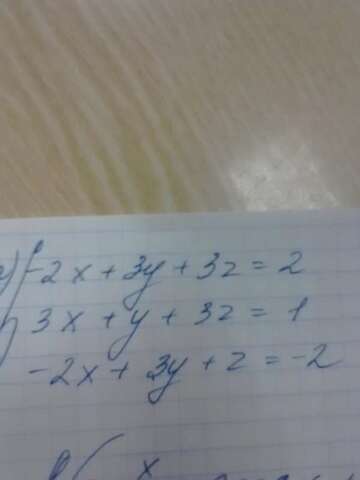 2) { -2x + 3y + 3z = 2
3x + y + 3z = 1
-2x + 3y + z = -2